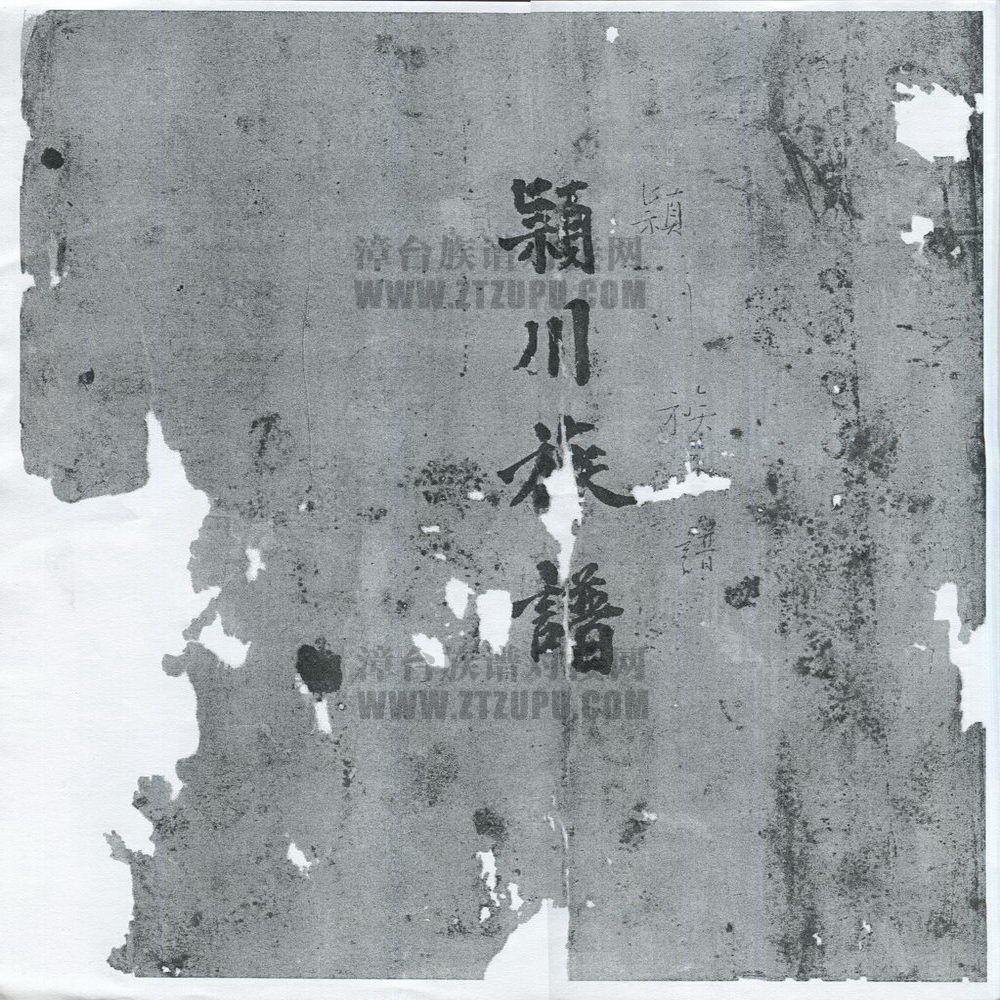 穎川族譜
穎川族譜
漳台族谱对接网
WWW.ZTZUPU.COM
漳台族谱对接网
WWW.ZTZUPU.COM